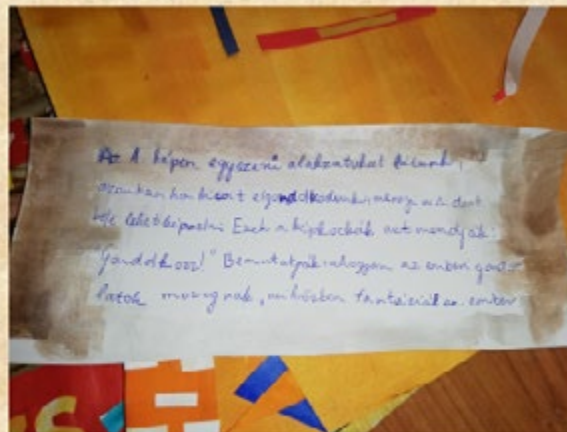 A képen egyszerű alakzatokat látunk,
azonban ha kicsit elgondolkodunk, mennyi mindent
bele lehet képzelni Ezek a képkockák azt mondják:
"Gondolkozz!" Bemutatják, ahogyan az ember gondo
latok mozognak, miközben fantáziál az ember